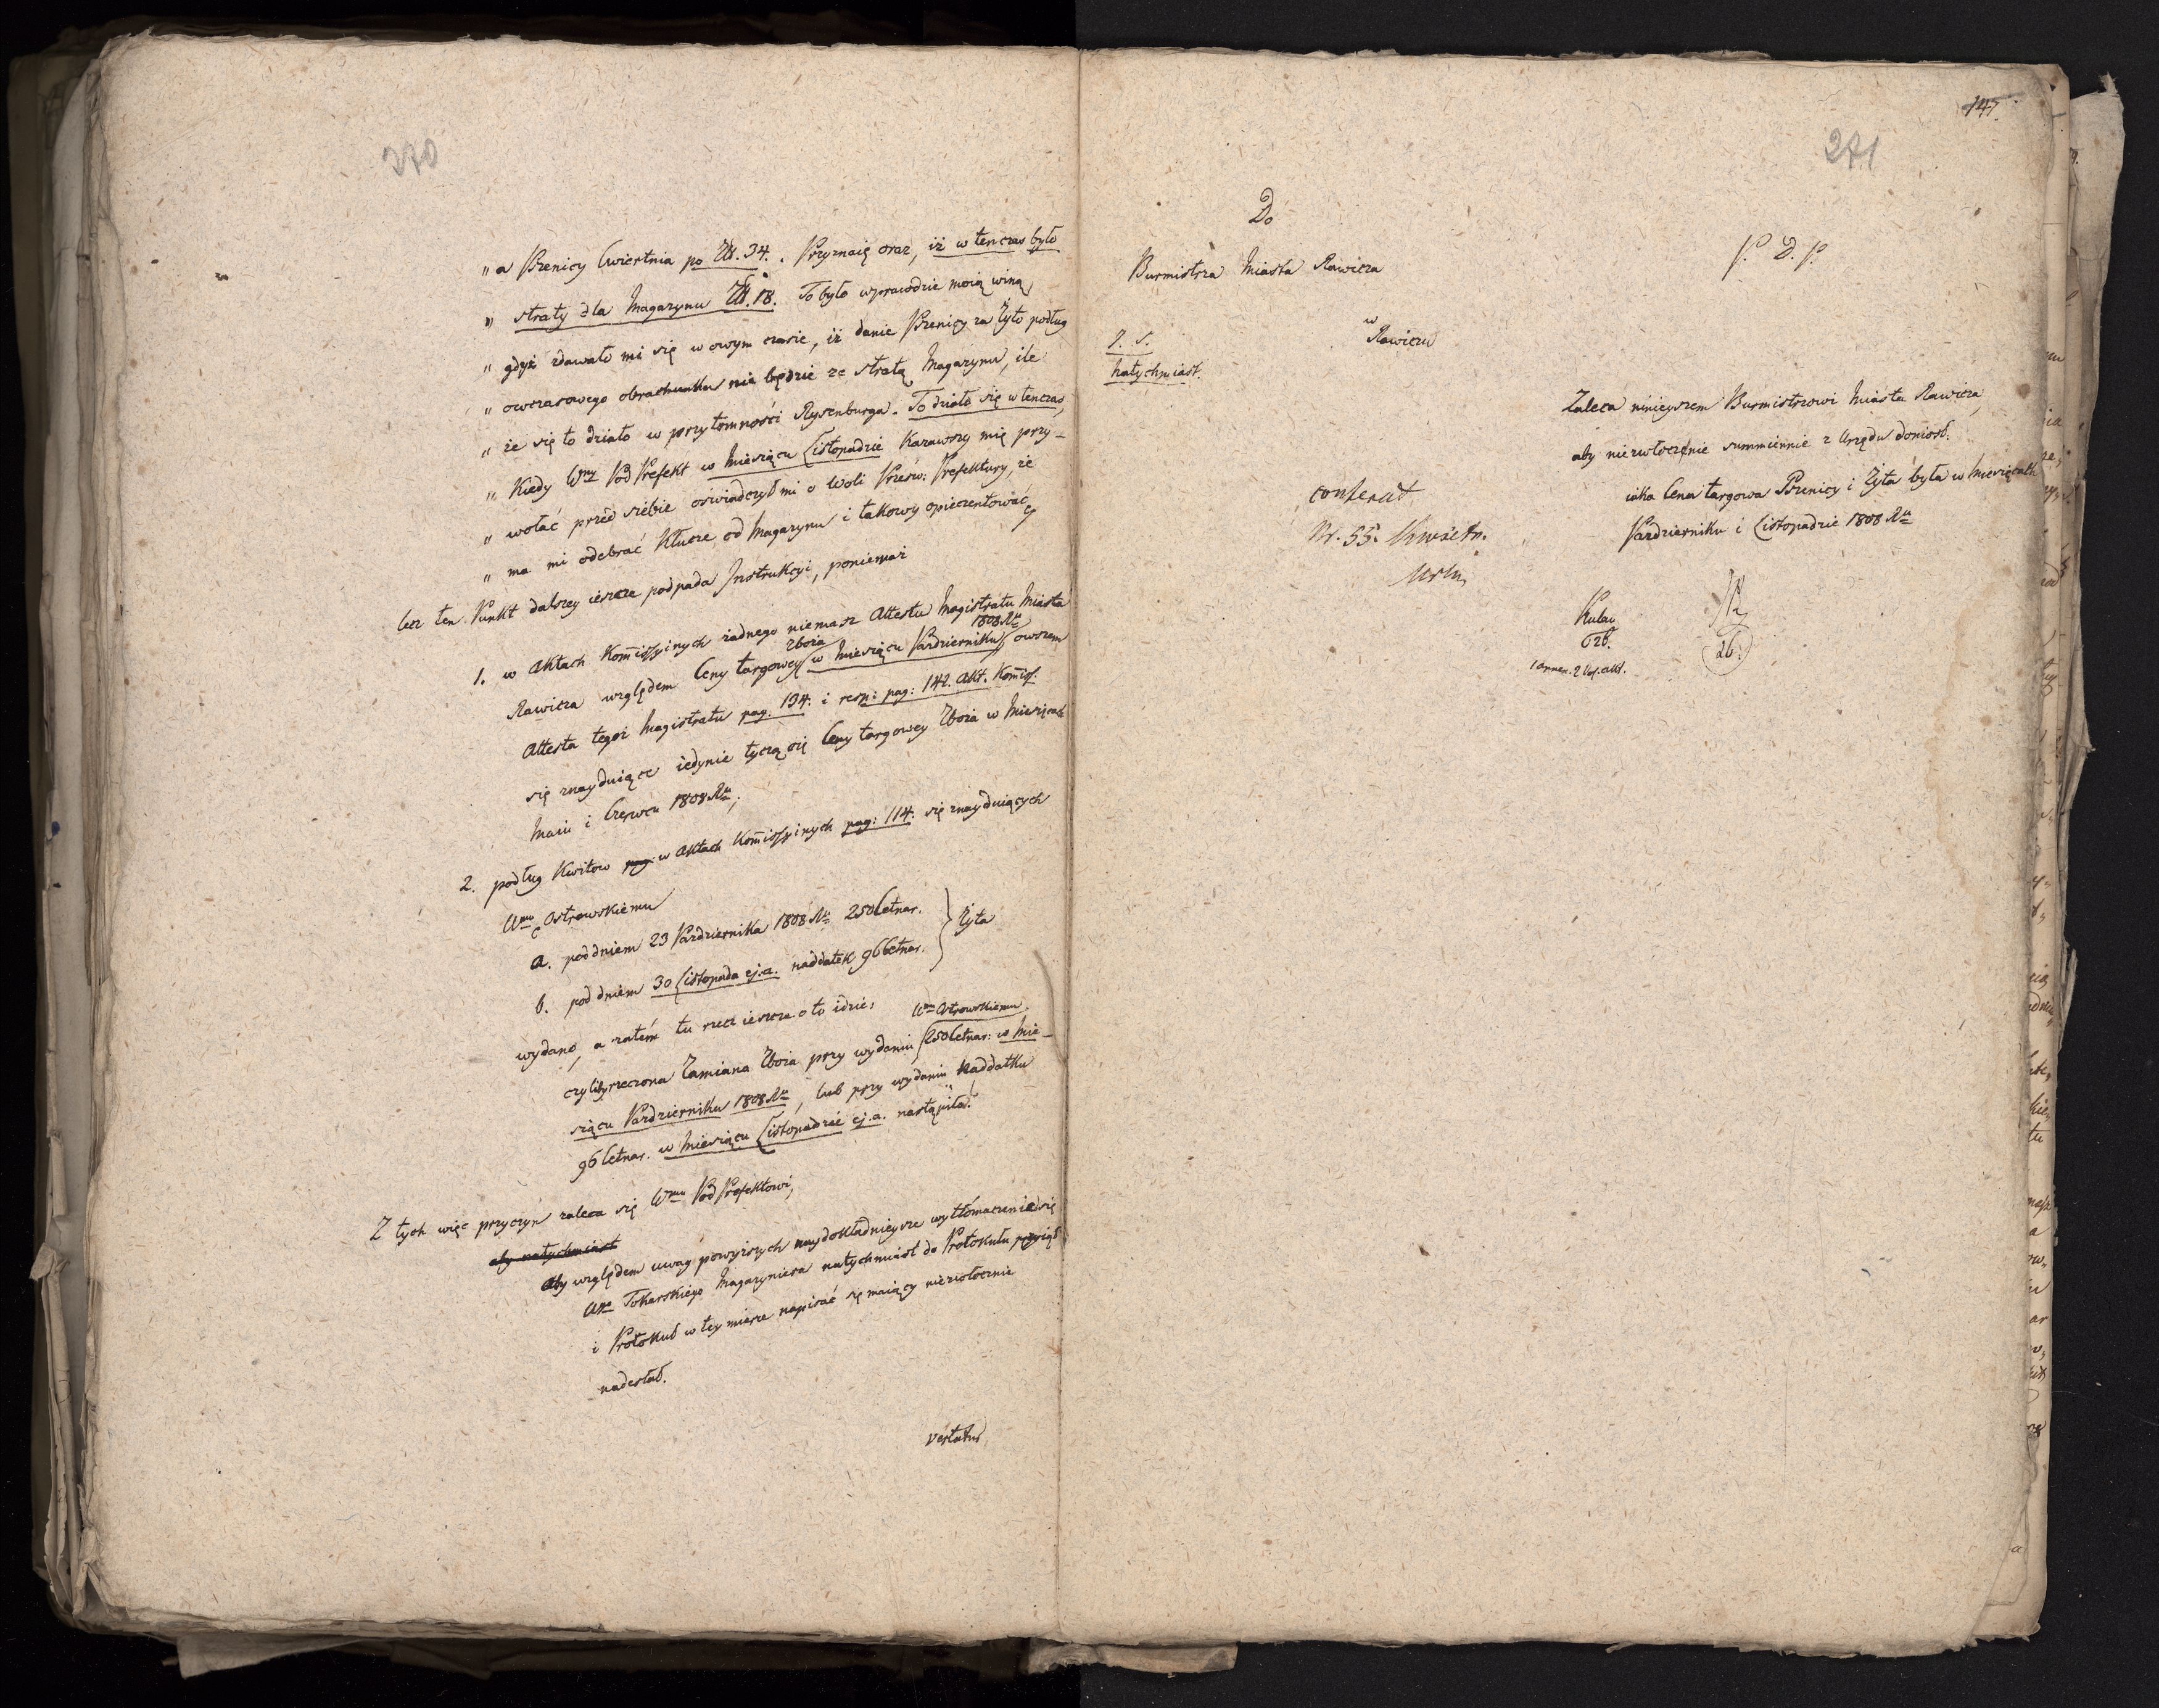 270
„ a Pszenicy Cwiertnia po Zł. 34. Przyznaię oraz, iż w tenczas było
„ straty dla Magazynu Zł. 18. To było wprawdzie moią winą,
„ gdyż zdawało mi się w owym czasie, iż danie Pszenicy za Żyto podług
„ owczasowego obrachunku nie będzie ze stratą Magazynu, ile
„ że się to działo w przytomności Rysenburga. To działo się w tenczas,
„ Kiedy Wny Pod Prefekt w Miesiącu Listopadzie Kazawszy mię przy-
„ wołać przed siebie oświadczył mi o Woli Prześw: Prefektury, że
„ ma mi odebrać Klucze od Magazynu i takowy opieczentować,
lecz ten Punkt dalszey ieszcze podpada Instrukcyi, ponieważ
1. w Aktach Komissyinych żadnego niemasz Attestu Magistratu Miasta
Rawicza względem Ceny targowey zboża w Miesiącu Październiku 1808 Ru owszem
Attesta tegoż Magistratu pag. 134. i resp: pag: 142. Akt. Komiss.
się znayduiące iedynie tyczą się Ceny targowey Zboża w Miesiącach
Maiu i Czerwcu 1808 Ru;
2. podług Kwitow pag: w Aktach Komissyinych pag: 114. się znayduiących
Wmu Ostrowskiemu
a. pod dniem 23 Października 1808 Ru 250 Cetnar.
b. pod dniem 30 Listopada ej.a. naddatek 96 Cetnar. } Żyta
wydano, a zatém tu rzecz ieszcze o to idzie:
czyliby rzeczona Zamiana Zboża przy wydaniu Wmu Ostrowskiemu 250 Cetnar: w Mie-
siącu Październiku 1808 Ru, lub przy wydaniu Naddatku
96 Cetnar. w Miesiącu Listopadzie ej.a. nastąpiła?
Z tych więc przyczyn zaleca się Wmu Pod Prefektowi,
aby natychmiast
Aby względem uwag powyższych naydokładnieysze wytłomaczenie się
Wgo Tokarskiego Magazyniera natychmiast do Protokułu przyiął
i Protokuł w tey mierze napisać się maiący niezwłocznie
nadesłał.
vertatur
147.
271
Do
Burmistrza Miasta Rawicza
w
Rawiczu
P. D. P.
natychmiast.
Zaleca ninieyszem Burmistrzowi Miasta Rawicza,
aby niezwłocznie summiennie z Urzędu doniosł:
iaka Cena targowa Pszenicy i Żyta była w Miesiącach
Październiku i Listopadzie 1808 Ru
conferat
Nr. 55.
26.